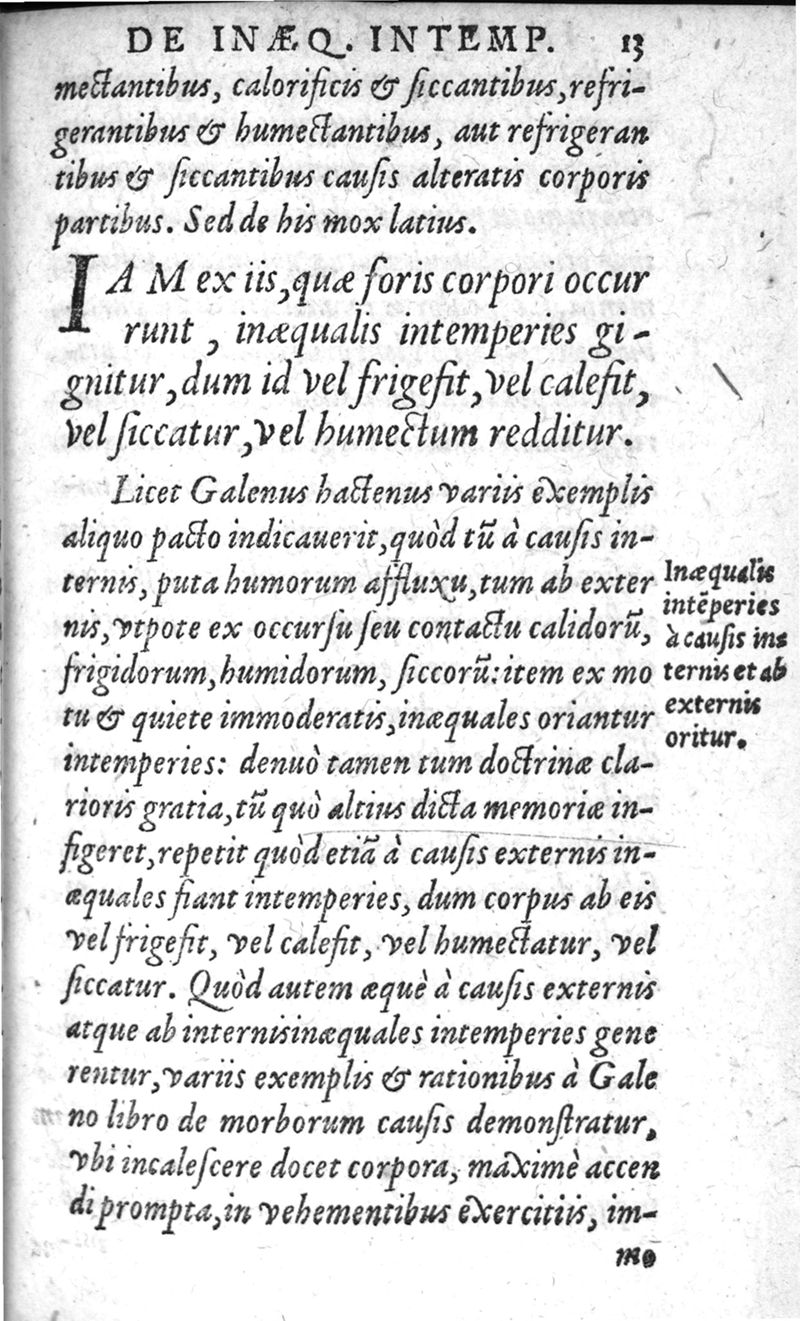 DE INÆQ. INTEMP. 13
mectantibus, calorificis & ſiccantibus, refri-
gerantibus & humectantibus, aut refrigeran
tibus & ſiccantibus cauſis alteratis corporis
partibus. Sed de his mox latius.
IAM ex iis, quæ foris corpori occur
runt, inæqualis intemperies gi-
gnitur, dum id vel frigefit, vel calefit,
vel ſiccatur, vel humectum redditur.
Licet Galenus hactenus variis exemplis
aliquo pacto indicauerit, quòd tũ à cauſis in-
ternis, puta humorum affluxu, tum ab exter
nis, vtpote ex occurſu ſeu contactu calidorũ,
frigidorum, humidorum, ſiccorũ: item ex mo
tu & quiete immoderatis, inæquales oriantur
intemperies: denuò tamen tum doctrinæ cla-
rioris gratia, tũ quò altius dicta memoriæ in-
figeret, repetit quòd etiã à cauſis externis in-
æquales fiant intemperies, dum corpus ab eis
vel frigefit, vel calefit, vel humectatur, vel
ſiccatur. Quòd autem æquè à cauſis externis
atque ab internis inæquales intemperies gene
rentur, variis exemplis & rationibus à Gale
no libro de morborum cauſis demonſtratur,
vbi incaleſcere docet corpora, maximè accen
di prompta, in vehementibus exercitiis, im-
mo
Inæqualis
intẽperies
à cauſis in-
ternis et ab
externis
oritur.